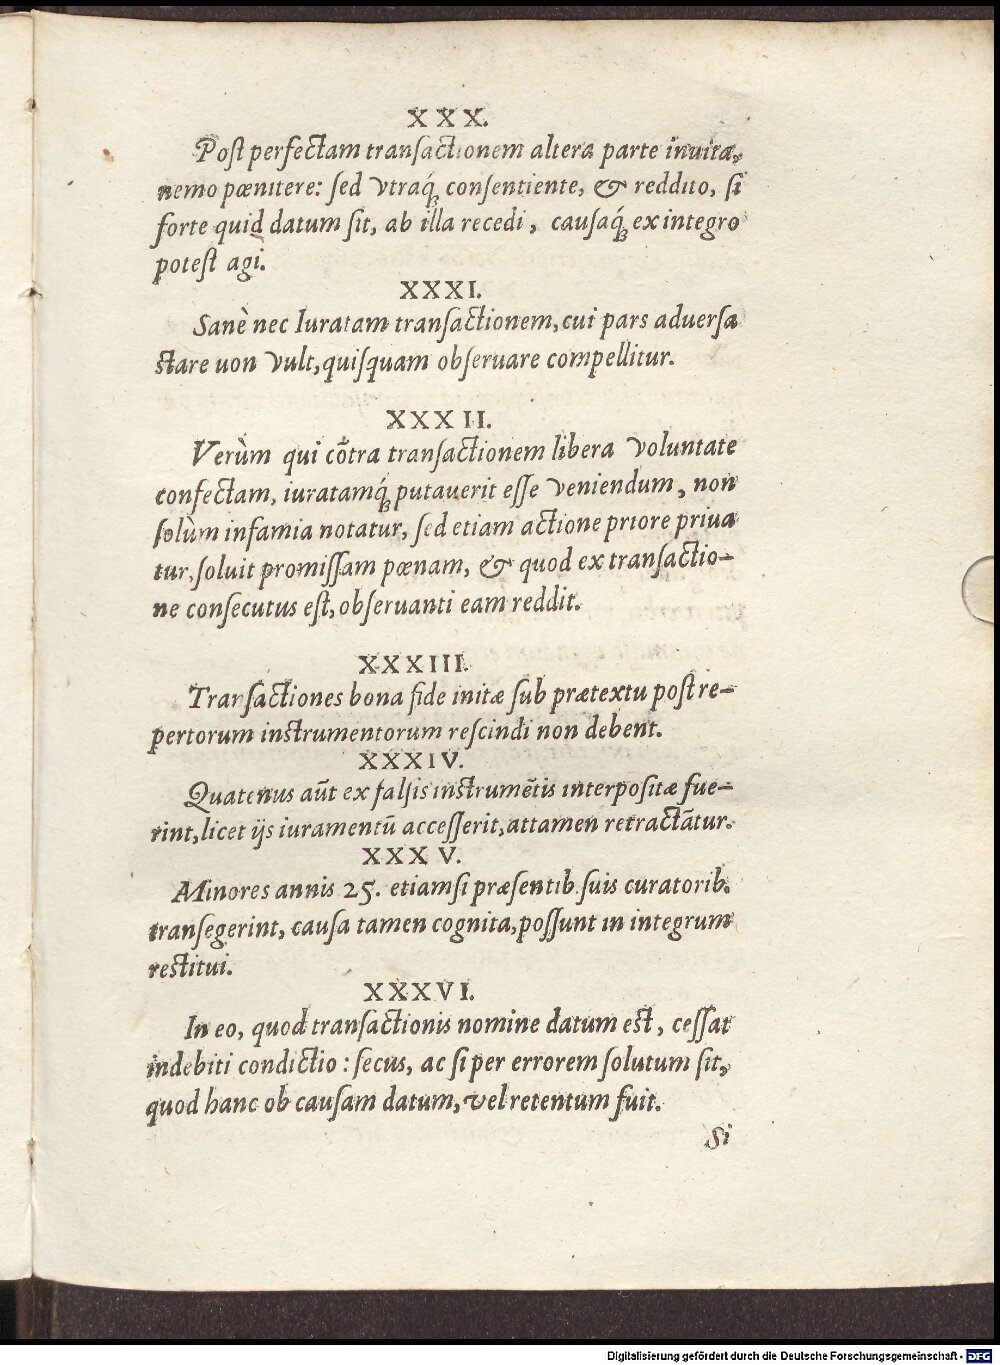 XXX.
Poſt perfectam tranſactionem altera parte inuita,
nemo pœnitere: ſed vtraq́; conſentiente, & reddito, ſi
forte quid datum ſit, ab illa recedi, cauſaq́; ex integro
poteſt agi.
XXXI.
Sanè nec Iuratam tranſactionem, cui pars aduerſa
ſtare uon vult, quiſquam obſeruare compellitur.
XXXII.
Verùm qui cõtra tranſactionem libera voluntate
confectam, iuratamq́; putauerit eſſe veniendum, non
ſolùm infamia notatur, ſed etiam actione priore priua
tur, ſoluit promiſſam pœnam, & quod ex tranſactio-
ne conſecutus eſt, obſeruanti eam reddit.
XXXIII.
Tranſactiones bona fide initæ ſub prætextu poſt re-
pertorum inſtrumentorum reſcindi non debent.
XXXIV.
Quatenus aũt ex falſis inſtrumẽtis interpoſitæ fue-
rint, licet ijs iuramentũ acceſſerit, attamen retractãtur.
XXXV.
Minores annis 25. etiamſi præſentib. ſuis curatorib.
tranſegerint, cauſa tamen cognita, poſſunt in integrum
reſtitui.
XXXVI.
In eo, quod tranſactionis nomine datum eſt, ceſſat
indebiti condictio: ſecus, ac ſi per errorem ſolutum ſit,
quod hanc ob cauſam datum, vel retentum fuit.
Si
Digitalisierung gefördert durch die Deutsche Forschungsgemeinschaft - DFG